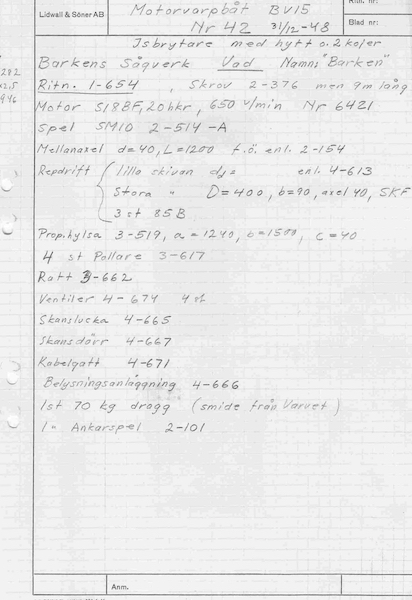 Lidwall & Söner AB
Motorvarpbåt BV15
Nr 42 31/12-48
Ritn. nr:
Blad nr:
Isbrytare med hytt o. 2 kojer
Barkens Sågverk Vad Namn: "Barken"
Ritn. 1-654, Skrov 2-376 men 9m lång
Motor S188F, 20 hkr, 650 v/min Nr 6421
Spel SM10 2-514-A
Mellanaxel d=40, L=1200 f.ö. enl. 2-154
Repdrift lilla skivan dy= enl. 4-613
Stora " D=400, b=90, axel 40, SKF
3 st 85B
Prop.hylsa 3-519, a=1240, b=1500, c=40
4 st Pollare 3-617
Ratt 3-662
Ventiler 4-674 4 st
Skanslucka 4-665
Skansdörr 4-667
Kabelgatt 4-671
Belysningsanläggning 4-666
1st 70 kg dragg (smide från Varvet)
1 " Ankarspel 2-101
Anm.